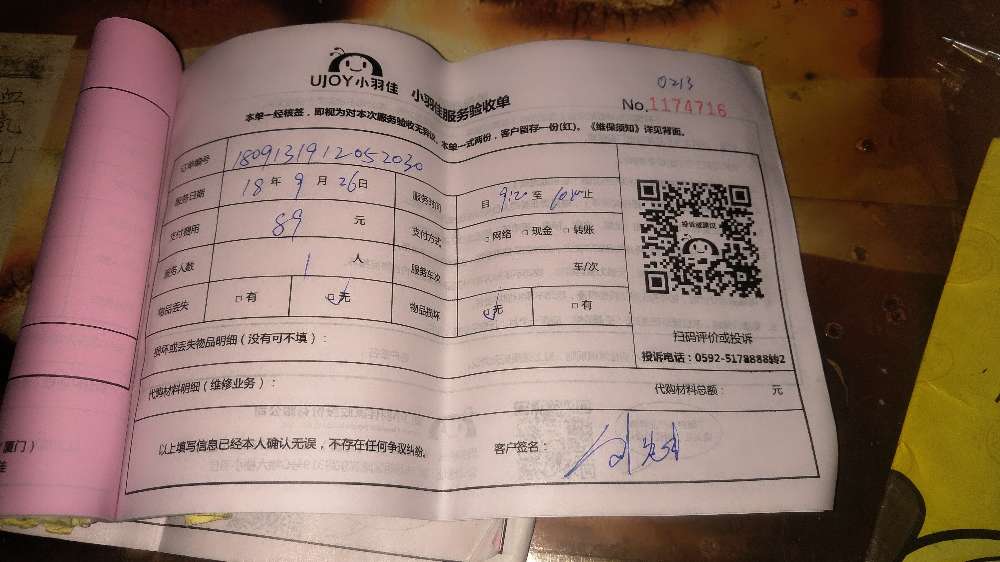 0213
UJOY小羽佳 小羽佳服务验收单
No.1174716
本单一经核签，即视为对本次服务验收无异议。本单一式两份，客户留存一份(红)。《维保须知》详见背面。
订单编号 1809131912052030
服务日期 18年9月26日 服务时间 自9:20至 止
支付费用 89元 支付方式 □网络 □现金 □转账
服务人数 1人 服务车次 车/次
物品丢失 □有 □无 物品损坏 □无 □有
投诉或建议
扫码评价或投诉
投诉电话：0592-5178888转2
损坏或丢失物品明细（没有可不填）：
代购材料明细（维修业务）： 代购材料总额： 元
以上填写信息已经本人确认无误，不存在任何争议纠纷。 客户签名：
厦门）
佳